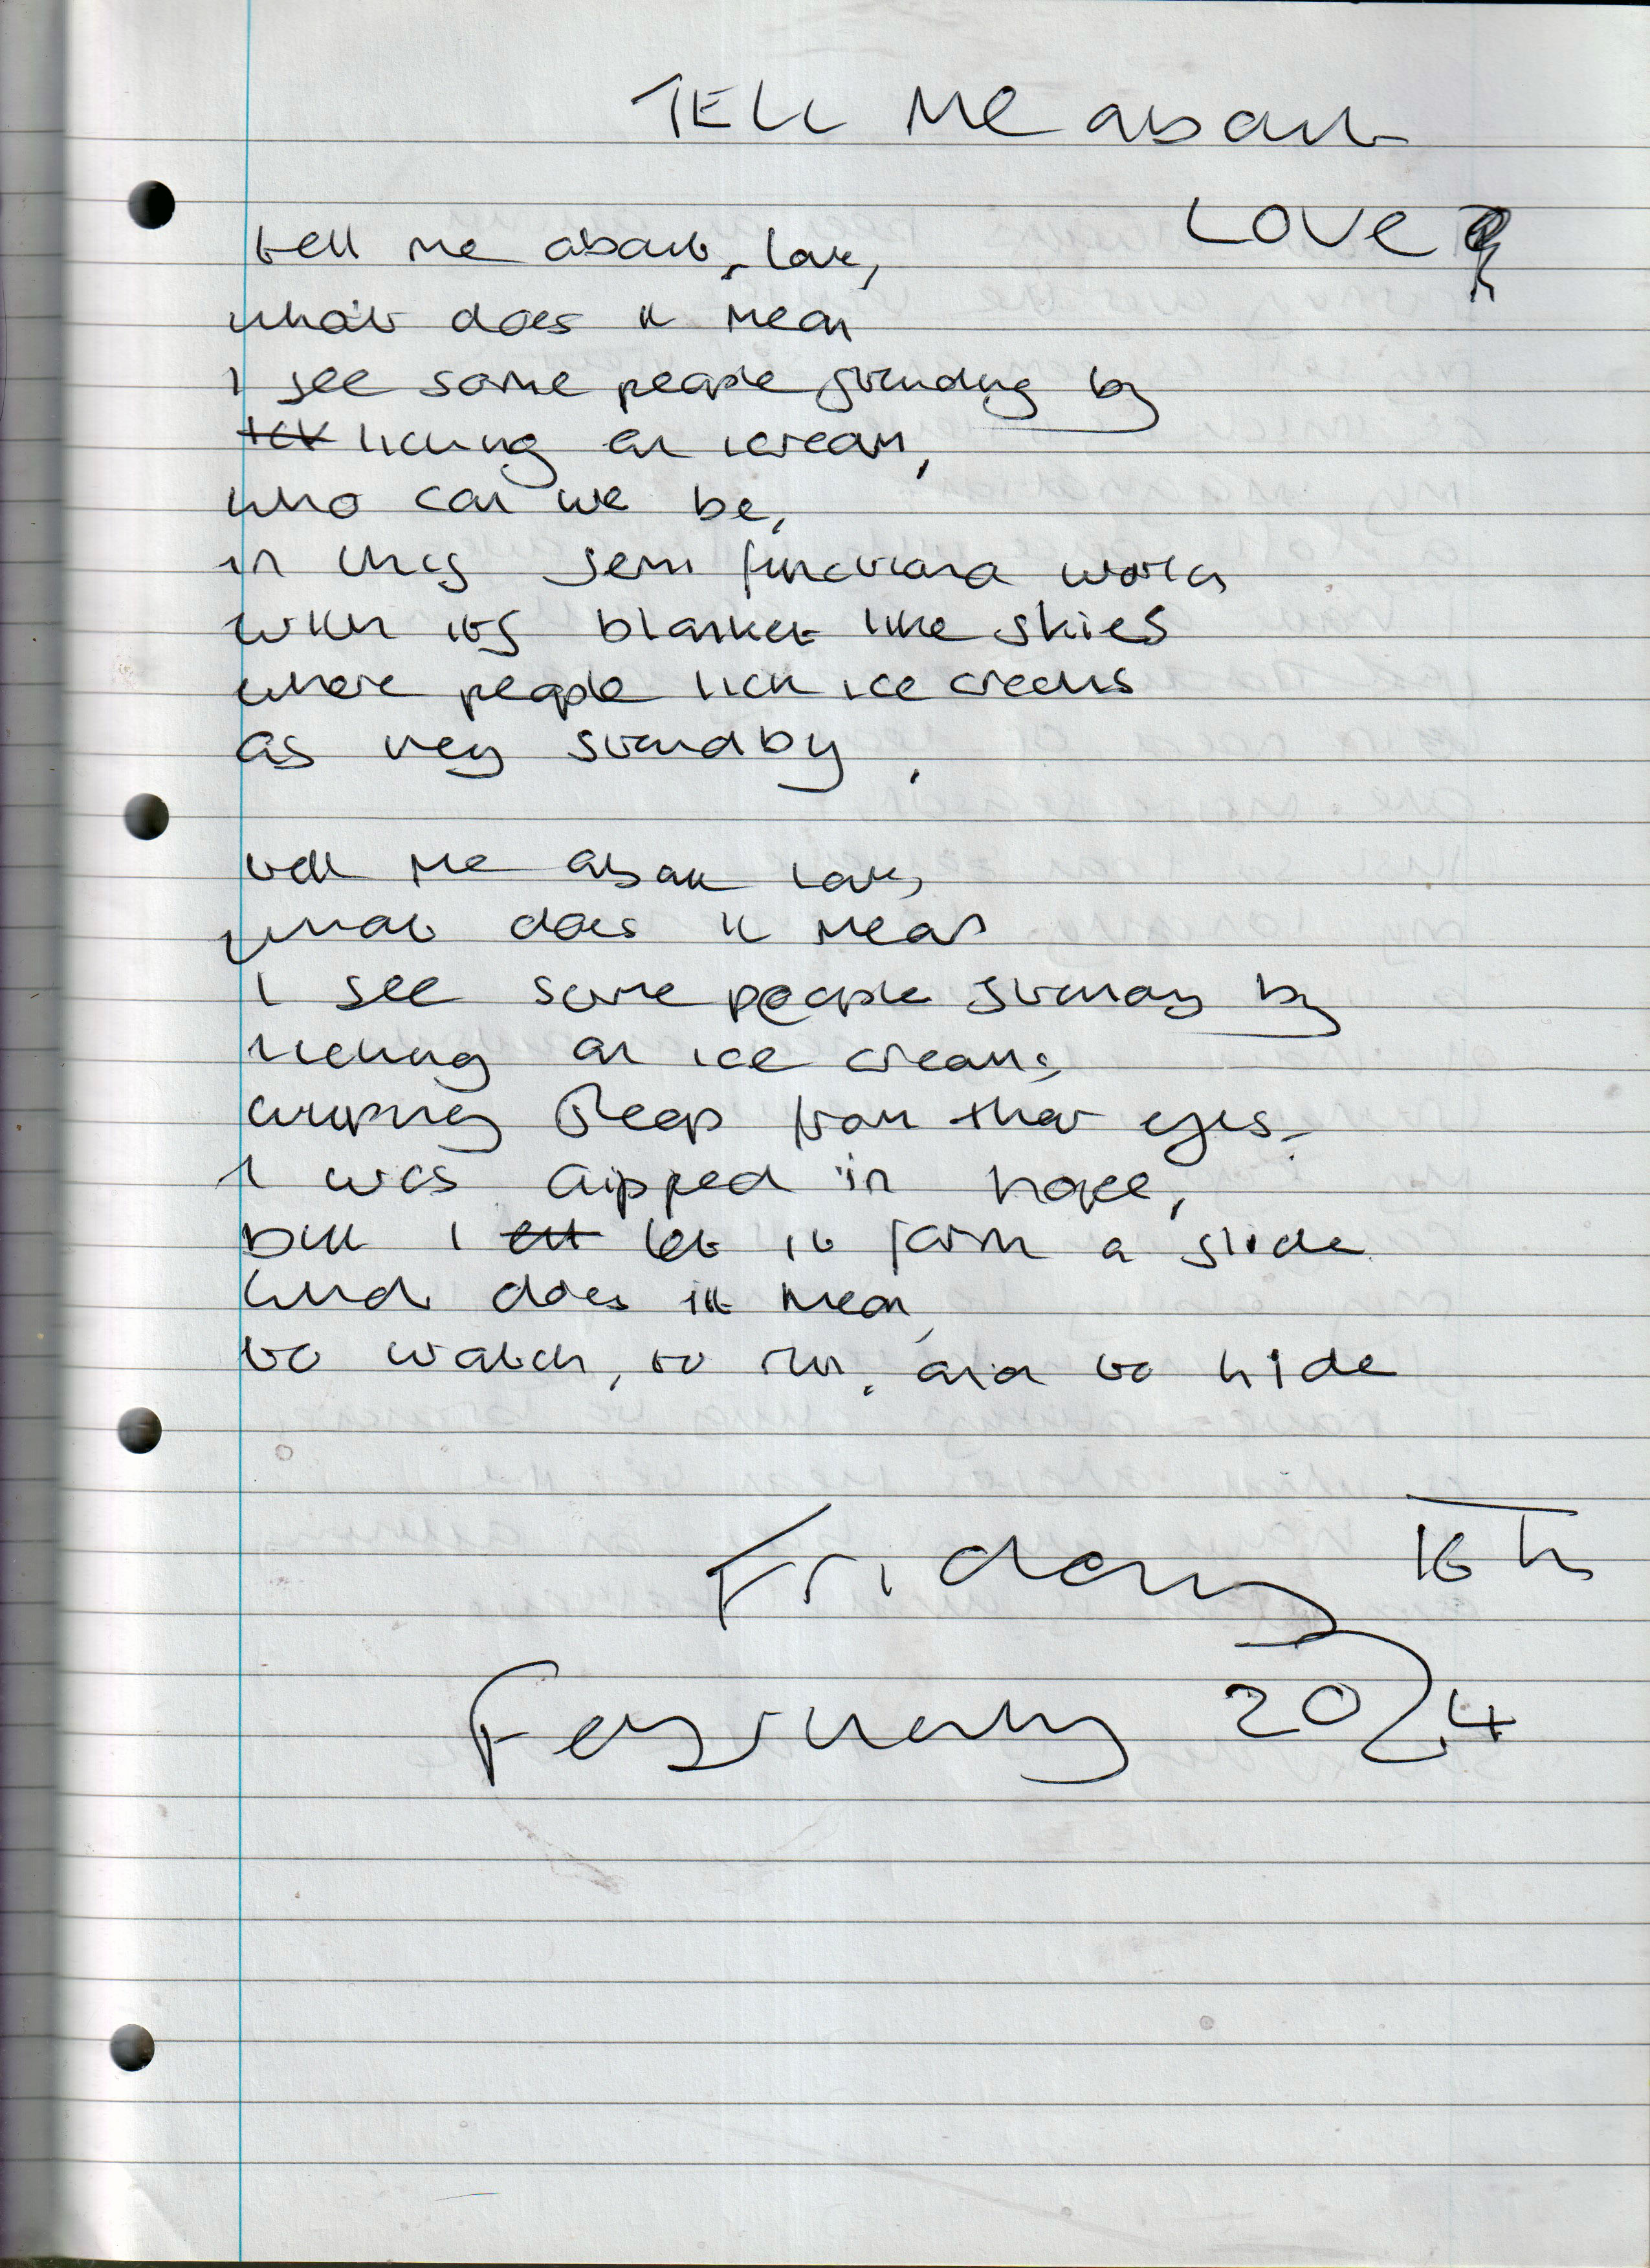 TELL Me about
LOVE
tell me about, love,
what does it mean
I see some people standing by
licking an icream,
who can we be,
in this semi functiona world
with its blanket like skies
where people lick ice creams
as they standby.
tell me about love,
what does it mean
I see some people standing by
licking an ice cream,
from their eyes.
I was dipped in hope,
but I let it form a slide
what does it mean,
to watch, to run, and to hide
Friday 16th
February 2024